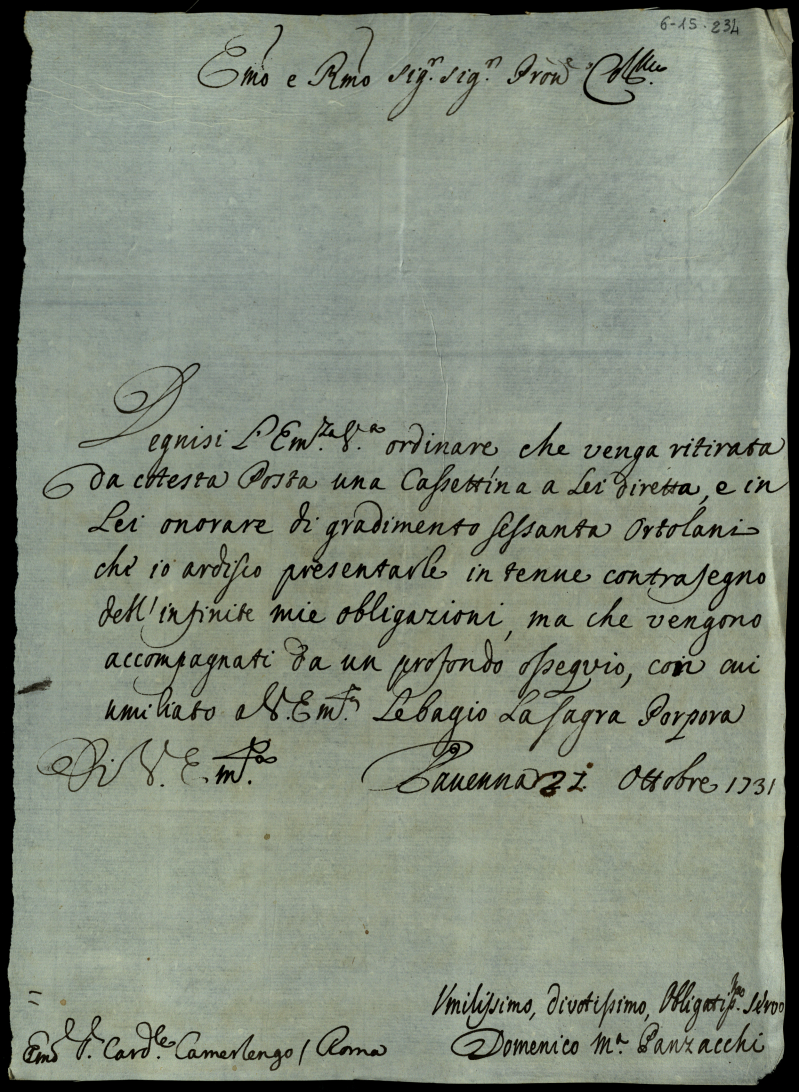 6-15. 234
Emo e Rmo Sig.r Sig.r Pron.e Coll.mo
Degnisi L'Em.za V.a ordinare che venga ritirata
da cotesta Posta una Cassettina a Lei diretta, e in
Lei onorare di gradimento sessanta Ortolani
che io ardisco presentarle in tenue contrasegno
dell'infinite mie obligazioni, ma che vengono
accompagnati da un profondo ossequio, con cui
umiliato a V. Em.za Le bagio La sagra Porpora
Di V. Em.za Ravenna 21 Ottobre 1731
Umilissimo, divotissimo, Obligatiss.mo Servo
Emo S.r Card.le Camerlengo / Roma
Domenico M.a Panzacchi